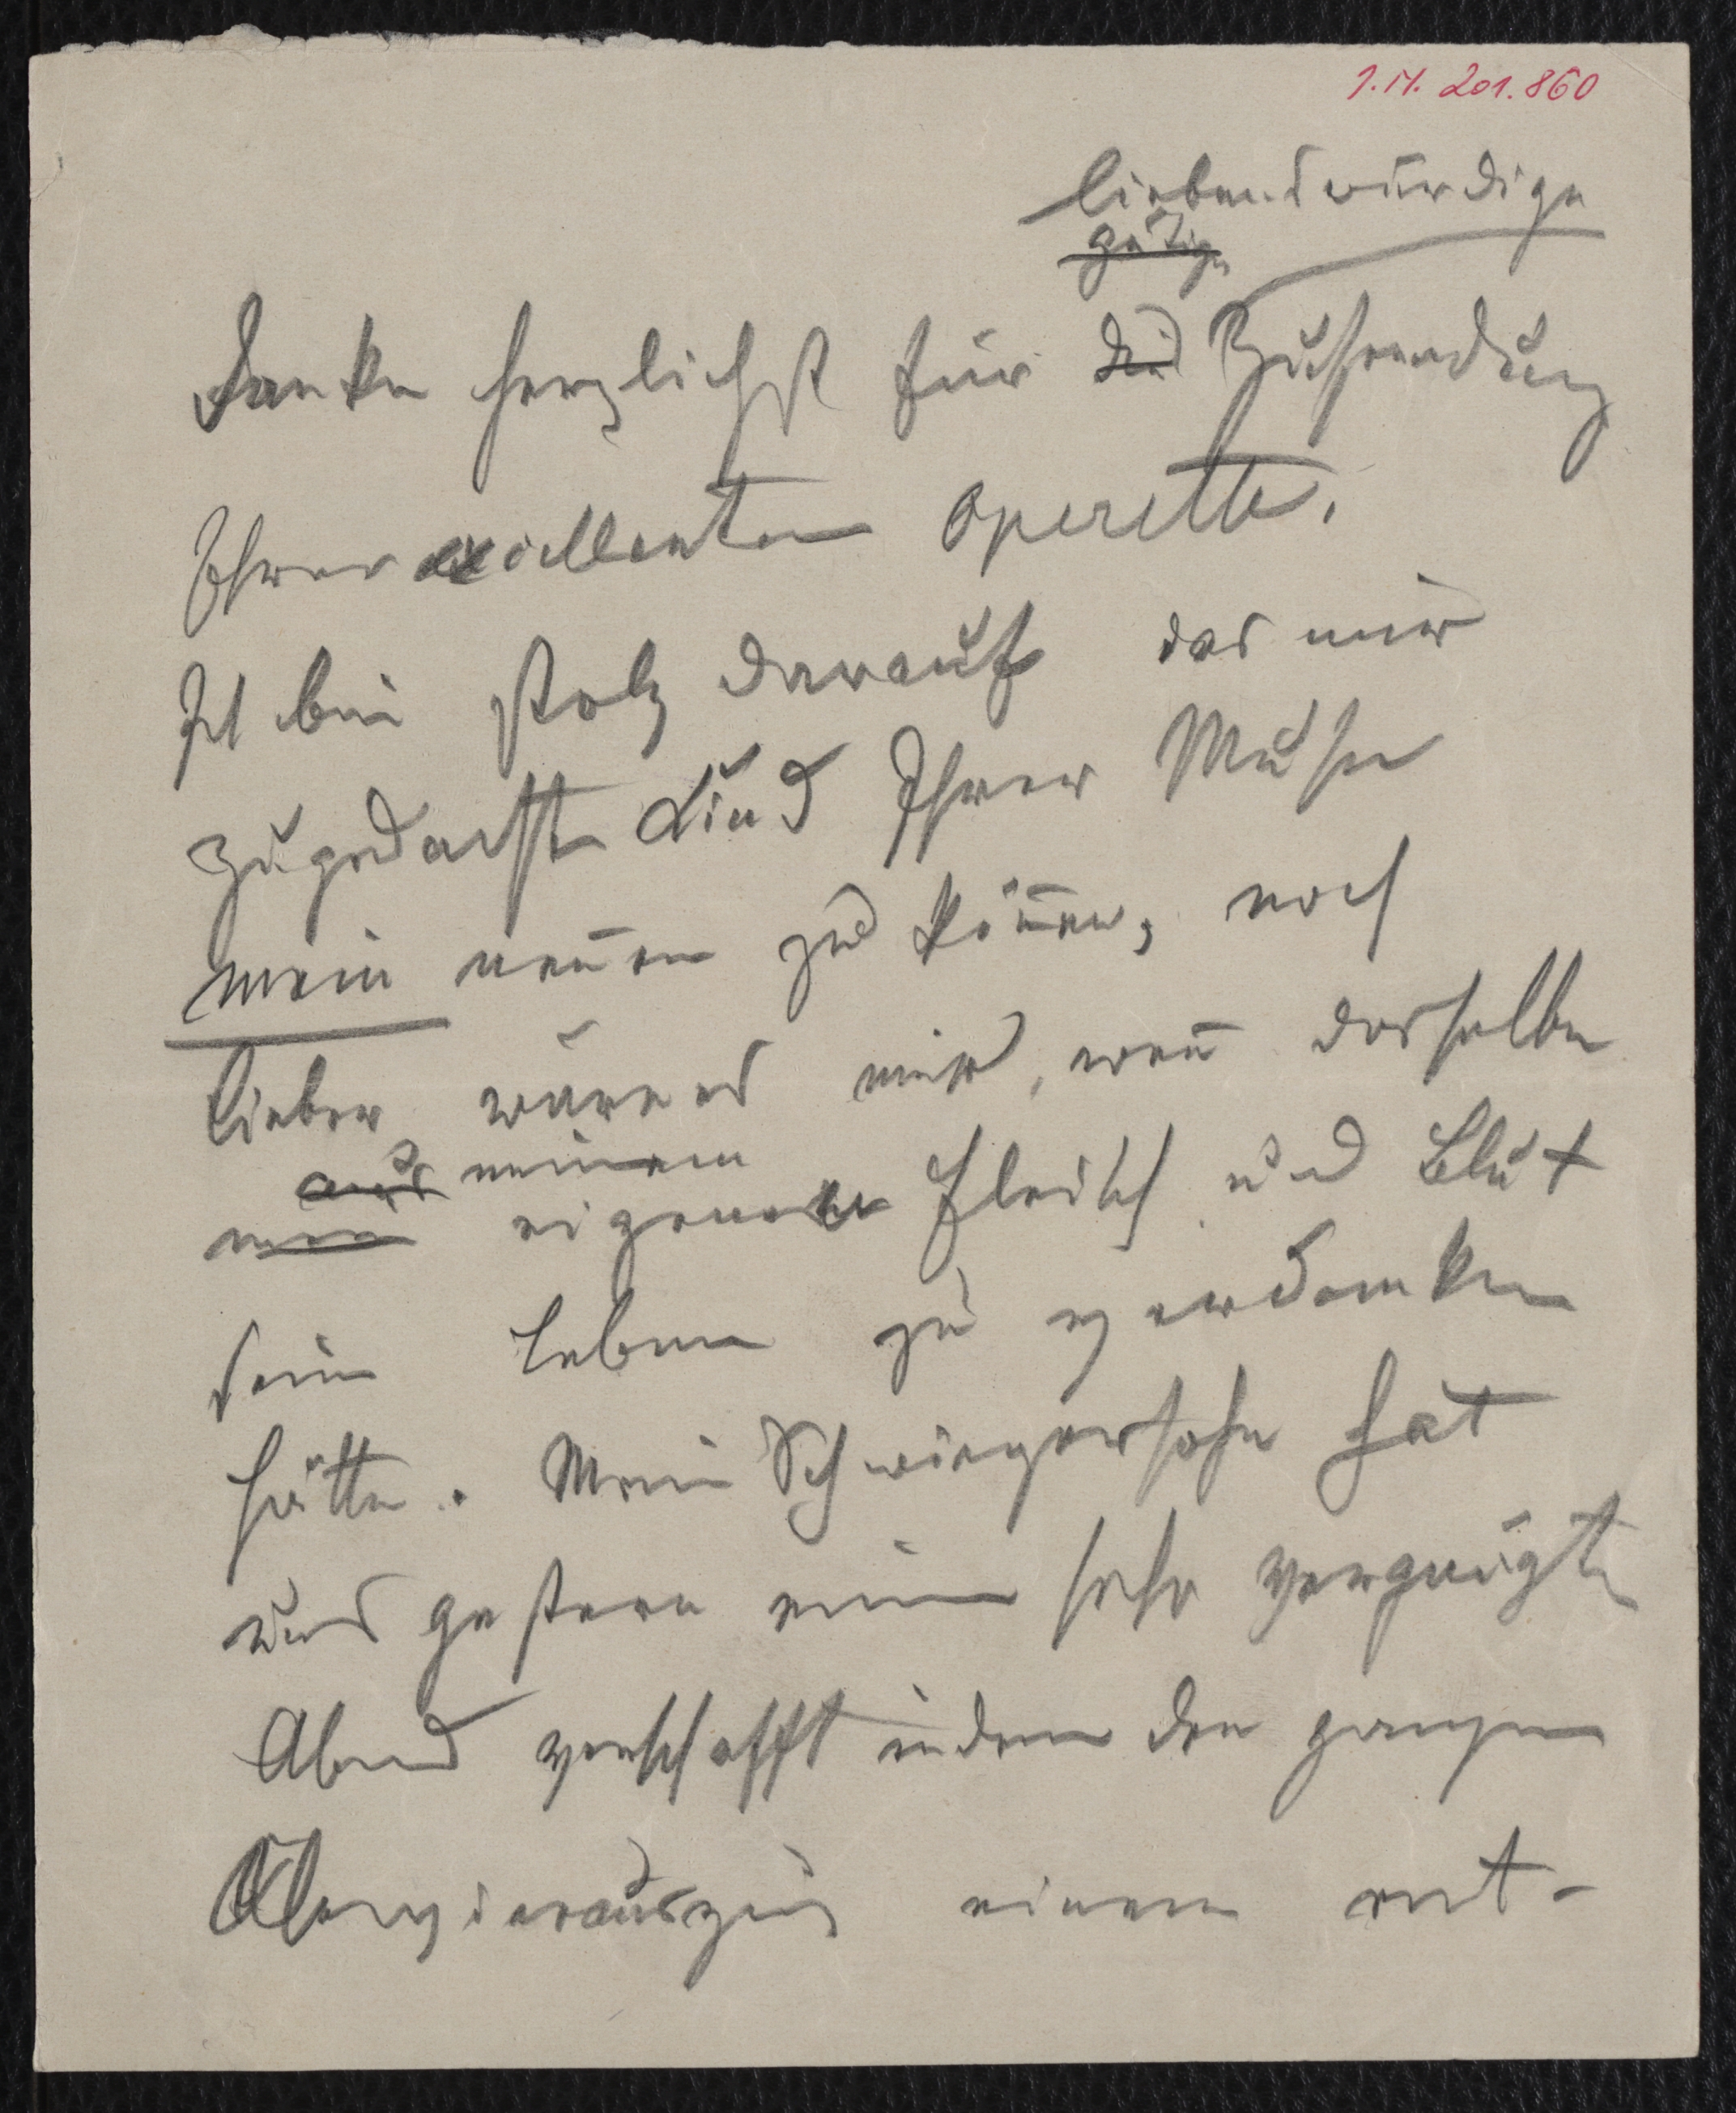 I.N. 201.860
liebenswürdige
gütige
Danke herzlichst für die Zusendung
Ihrer excillenten Operette.
Ich bin stolz darauf das mir
zugedachte Kind Ihrer Muse
mein nen̅en zu kön̅en, noch
lieber wäre es mir, wen̅ dasselbe
aus meinem
mein eigenen Fleisch und Blut
sein Leben zu verdanken
hätte. Mein Schwiegersohn hat
uns gestern einen sehr vergnügten
Abend verschafft indem den ganzen
Clavierauszug einem ent-